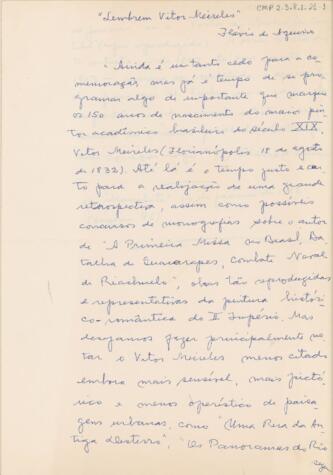 CMP 2.3.8.1.21-1
"Lembrem Vitor Meireles"
Flávio de Aquino
" Ainda é um tanto cedo para a co-
memoração, mas já é tempo de se pro-
gramar algo de importante que marque
os 150 anos de nascimento do maior pin-
tor acadêmico brasileiro do século XIX,
Vitor Meireles (Florianópolis 18 de agosto
de 1832). Até lá é o tempo justo e cer-
to para a realização de uma grande
retrospectiva, assim como possíveis
concursos de monografias sobre o autor
de "A Primeira Missa no Brasil, Ba-
talha de Guararapes, Combate Naval
de Riachuelo", obras tão reproduzidas
e representativas da pintura históri-
co-romântica do II Império. Mas
desejamos fazer principalmente no-
tar o Vitor Meireles menos citado
embora mais sensível, mais pictó-
rico e menos operístico de paisa-
gens urbanas, como "Uma Rua da An-
tiga Desterro", "Os Panoramas do Rio